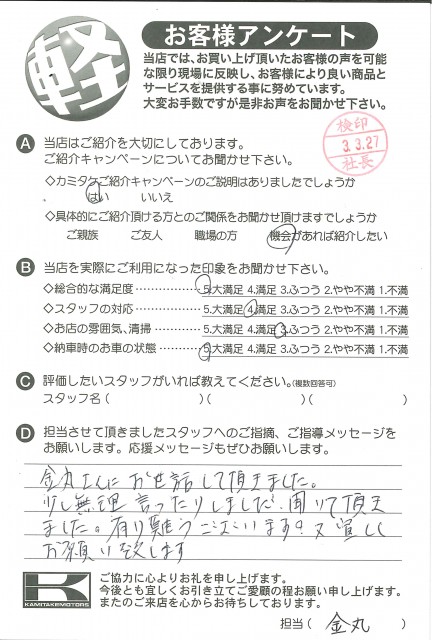 軽
お客様アンケート
当店では、お買い上げ頂いたお客様の声を可能
な限り現場に反映し、お客様により良い商品と
サービスを提供する事に努めています。
大変お手数ですが是非お声をお聞かせ下さい。
検印
3.3.27
社長
A 当店はご紹介を大切にしております。
ご紹介キャンペーンについてお聞かせ下さい。
◇カミタケご紹介キャンペーンのご説明はありましたでしょうか
はい いいえ
◇具体的にご紹介頂ける方とのご関係をお聞かせ頂けますでしょうか
ご親族 ご友人 職場の方 機会があれば紹介したい
B 当店を実際にご利用になった印象をお聞かせ下さい。
◇総合的な満足度 ……………… 5.大満足 4.満足 3.ふつう 2.やや不満 1.不満
◇スタッフの対応 ……………… 5.大満足 4.満足 3.ふつう 2.やや不満 1.不満
◇お店の雰囲気、清掃 ………… 5.大満足 4.満足 3.ふつう 2.やや不満 1.不満
◇納車時のお車の状態 ………… 5.大満足 4.満足 3.ふつう 2.やや不満 1.不満
C 評価したいスタッフがいれば教えてください。(複数回答可)
スタッフ名( )( )( )
D 担当させて頂きましたスタッフへのご指摘、ご指導メッセージを
お願いします。応援メッセージもぜひお願いします。
金丸さんにお世話して頂きました。
少し無理言ったりしましたが、聞いて頂き
ました。有り難うございます。又宜しく
お願い致します
K
KAMITAKEMOTORS
ご協力に心よりお礼を申し上げます。
今後とも宜しくお引き立てご愛顧の程お願い申し上げます。
またのご来店を心からお待ちしております。
担当( 金丸 )